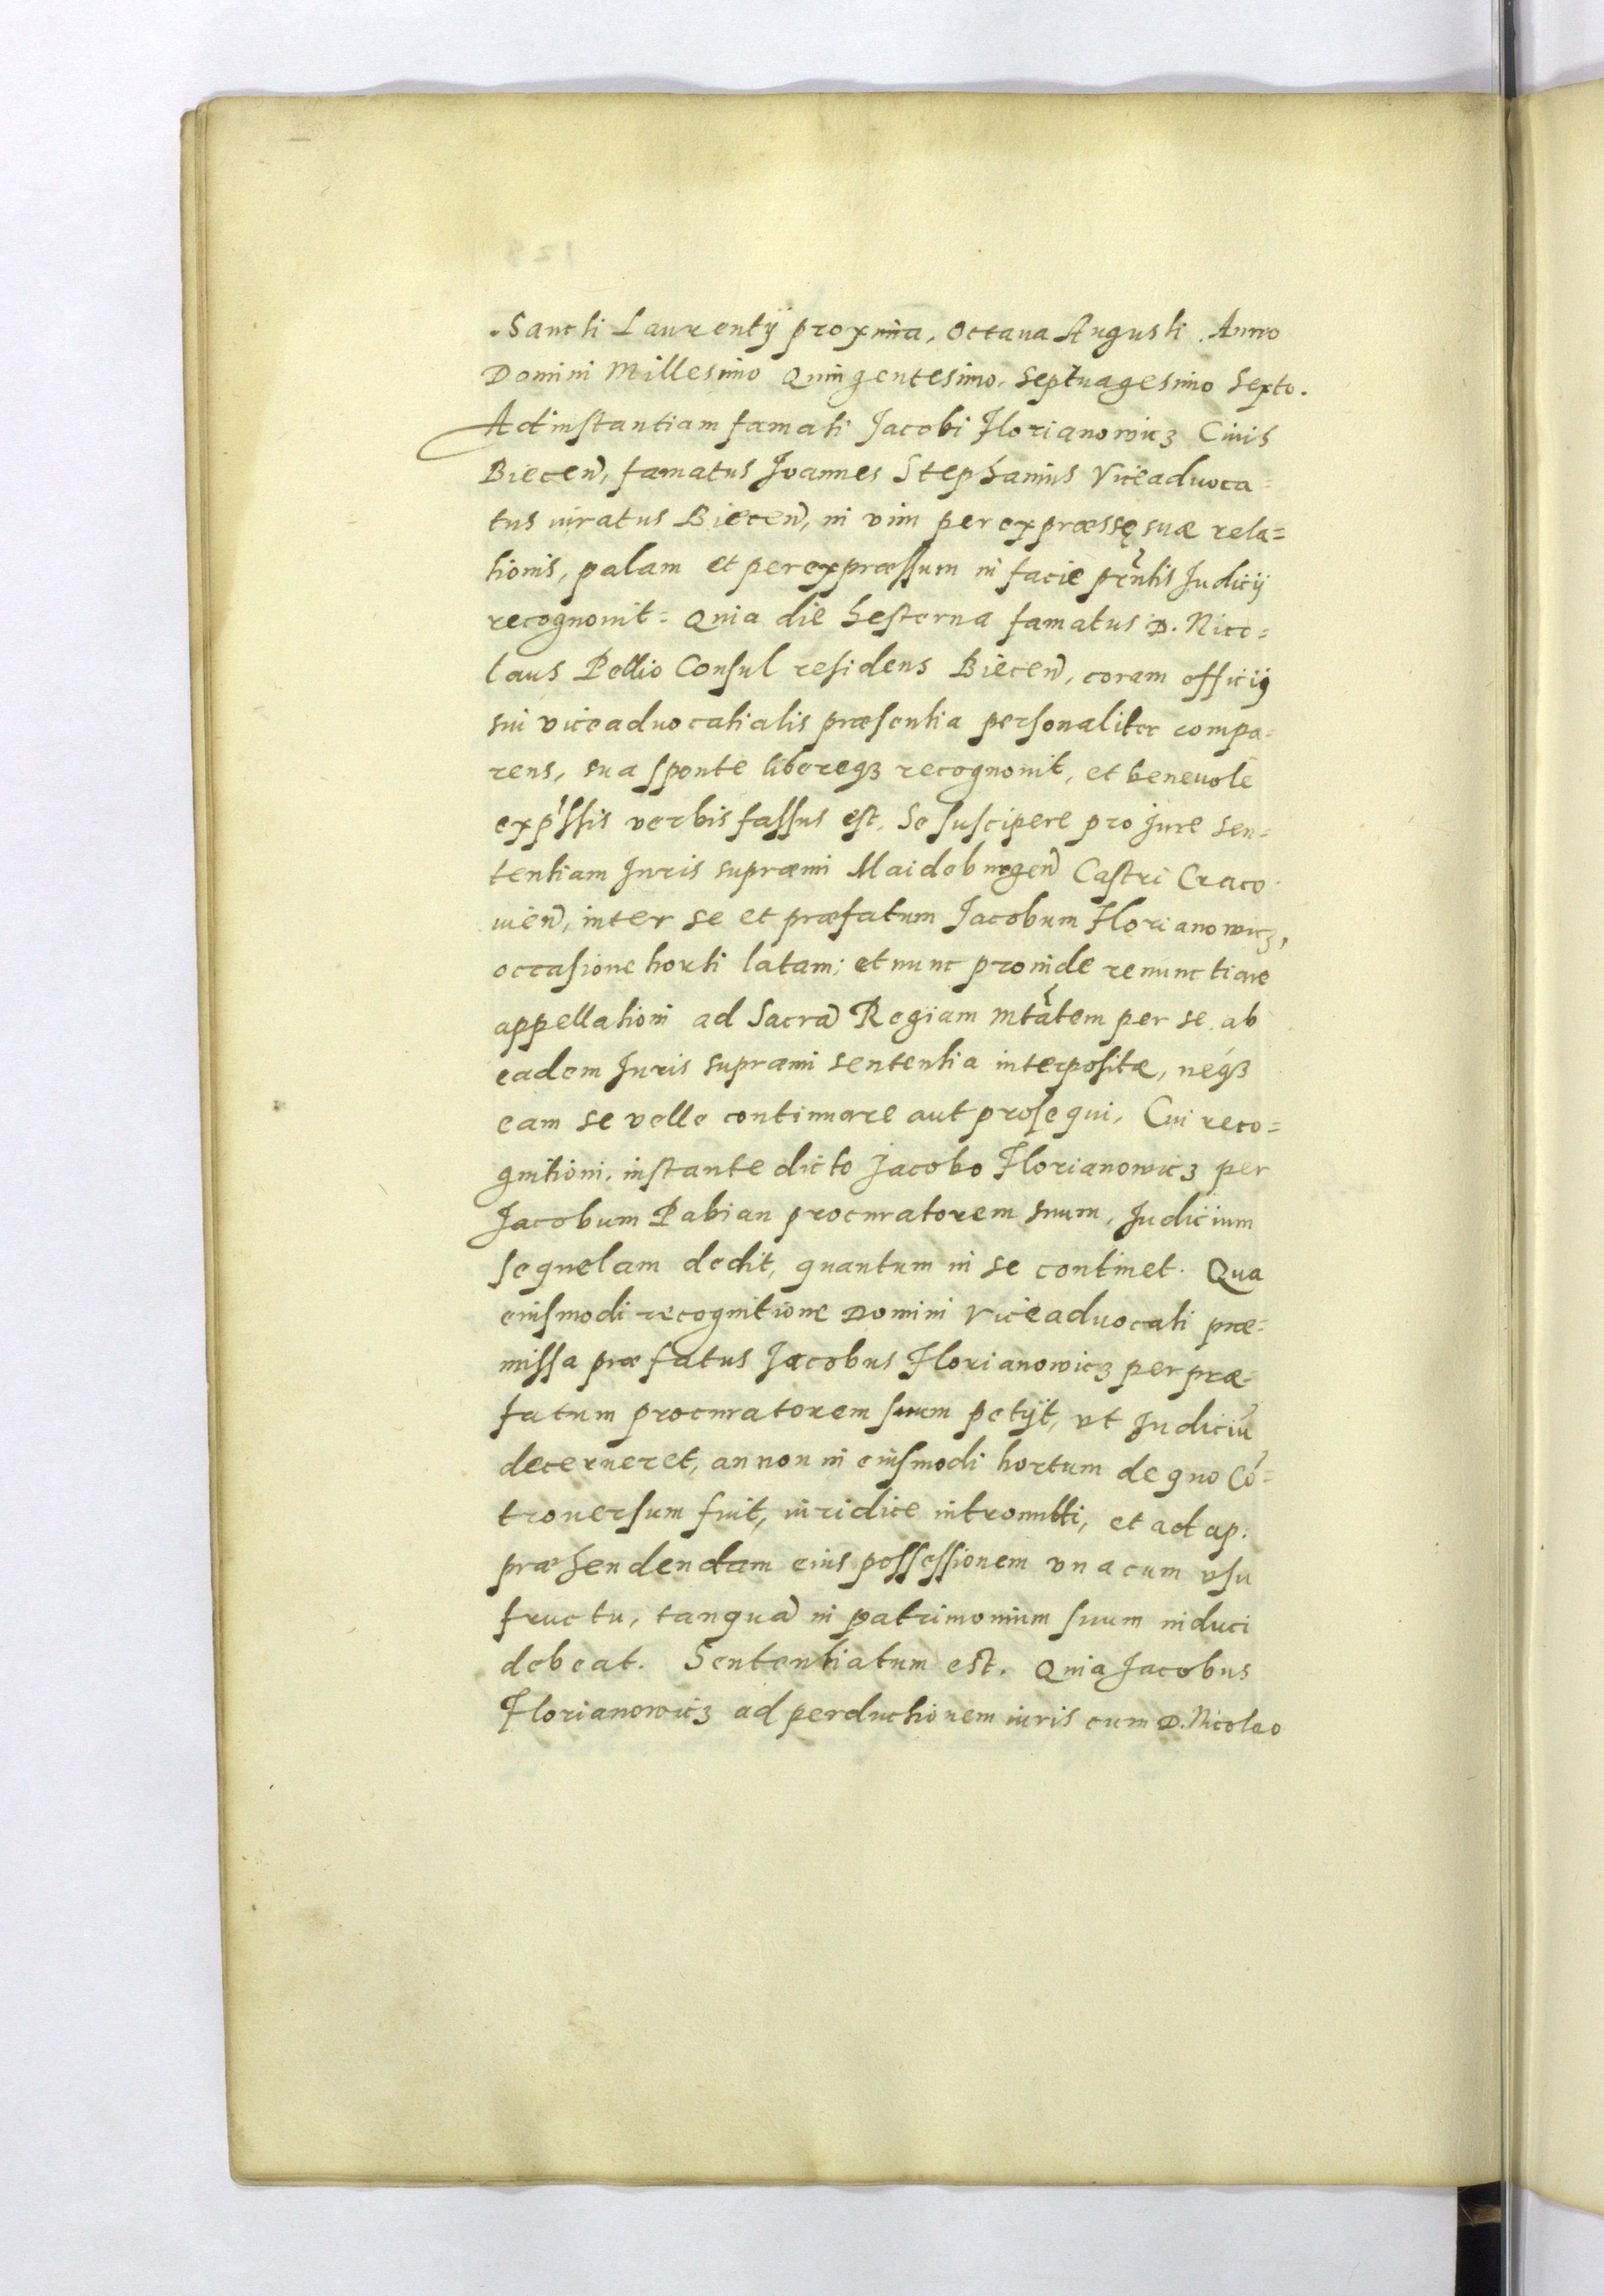 Sancti Laurentij proxima, octaua Augusti. Anno
Domini Millesimo Quingentesimo, Septuagesimo Sexto.
Ad instantiam famati Jacobi Florianowicz Ciuis
Biecen̄, famatus Joannes Stephanius Viceaduoca=
tus iuratus Biecen̄, in vim per expræssę suæ rela=
tionis, palam et per expræssum in facie prn̄tis Judicij
recognouit= Quia die hesterna famatus D. Nico=
laus Pellio Consul residens Biecen̄, coram officij
sui viceaduocatialis præsentia personaliter compa=
rens, sua sponte libereqꝫ recognouit, et beneuole
exp̄ssis verbis fassus est, Se suscipere pro jure sen=
tentiam Juris supræmi Maideburgen̄ Castri Craco=
uien̄, inter se et præfatum Jacobum Florianowicz,
occasione horti latam; et nunc proinde renunctiare
appellationi ad Sacrā Regiam Mtātem per se ab
eadem Juris supræmi sententia interpositæ, neqꝫ
eam se velle continuare aut prosequi, Cui reco=
gnitioni, instante dicto Jacobo Florianowicz per
Jacobum Pabian procuratorem suum, Judicium
sequelam dedit, quantum in se continet. Qua
eiusmodi recognitione Domini Viceaduocati præ=
missa præfatus Jacobus Florianowicz per præ=
fatum procuratorem suum petijt, vt Judiciū
decerneret, an non in eiusmodi hortum de quo cō=
trouersum fuit, iuridice intromitti, et ad ap=
præhendendam eius possessionem vna cum vsu
fructu, tanquā in patrimonium suum induci
debeat. Sententiatum est. Quia Jacobus
Florianowicz ad perductionem iuris cum D. Nicolao